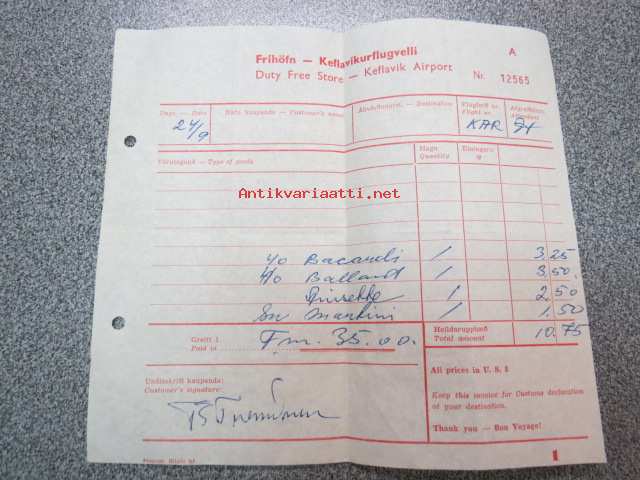 Fríhöfn — Keflavíkurflugvelli A
Duty Free Store — Keflavik Airport Nr. 12565
Dags — Date Nafn kaupanda — Customer's name Ákvörðunarst. — Destination Flugferð nr. Flight nr. Afgreiðslum. Attendant
24/9 KAR
Vörutegund — Type of goods Magn Quantity Einingarv.
Antikvariaatti.net
4/0 Bacardi 1 3,25
4/0 Ballant 1 3,50
2,50
Sv Martini 1 1,50
Greitt í Paid in Fm. 35.00. Heildarupphæð Total amount 10.75
All prices in U. S. $
Undirskrift kaupanda:
Customer's signature:
Keep this invoice for Customs declaration
at your destination.
Thank you — Bon Voyage!
1